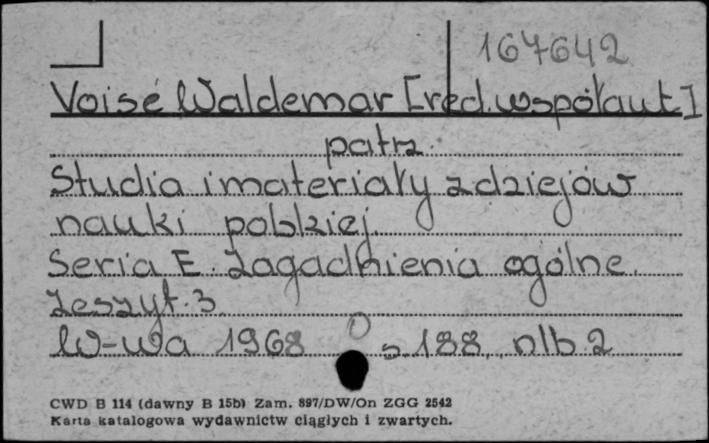 167642
Voisé Waldemar [red. współaut]
patrz
Studia i materiały z dziejów
nauki polskiej
Seria E. Zagadnienia ogólne.
Zeszyt. 3
W-wa 1968 s. 188, nlb. 2
CWD B 114 (dawny B 15b) Zam. 897/DW/On ZGG 2542
Karta katalogowa wydawnictw ciągłych i zwartych.